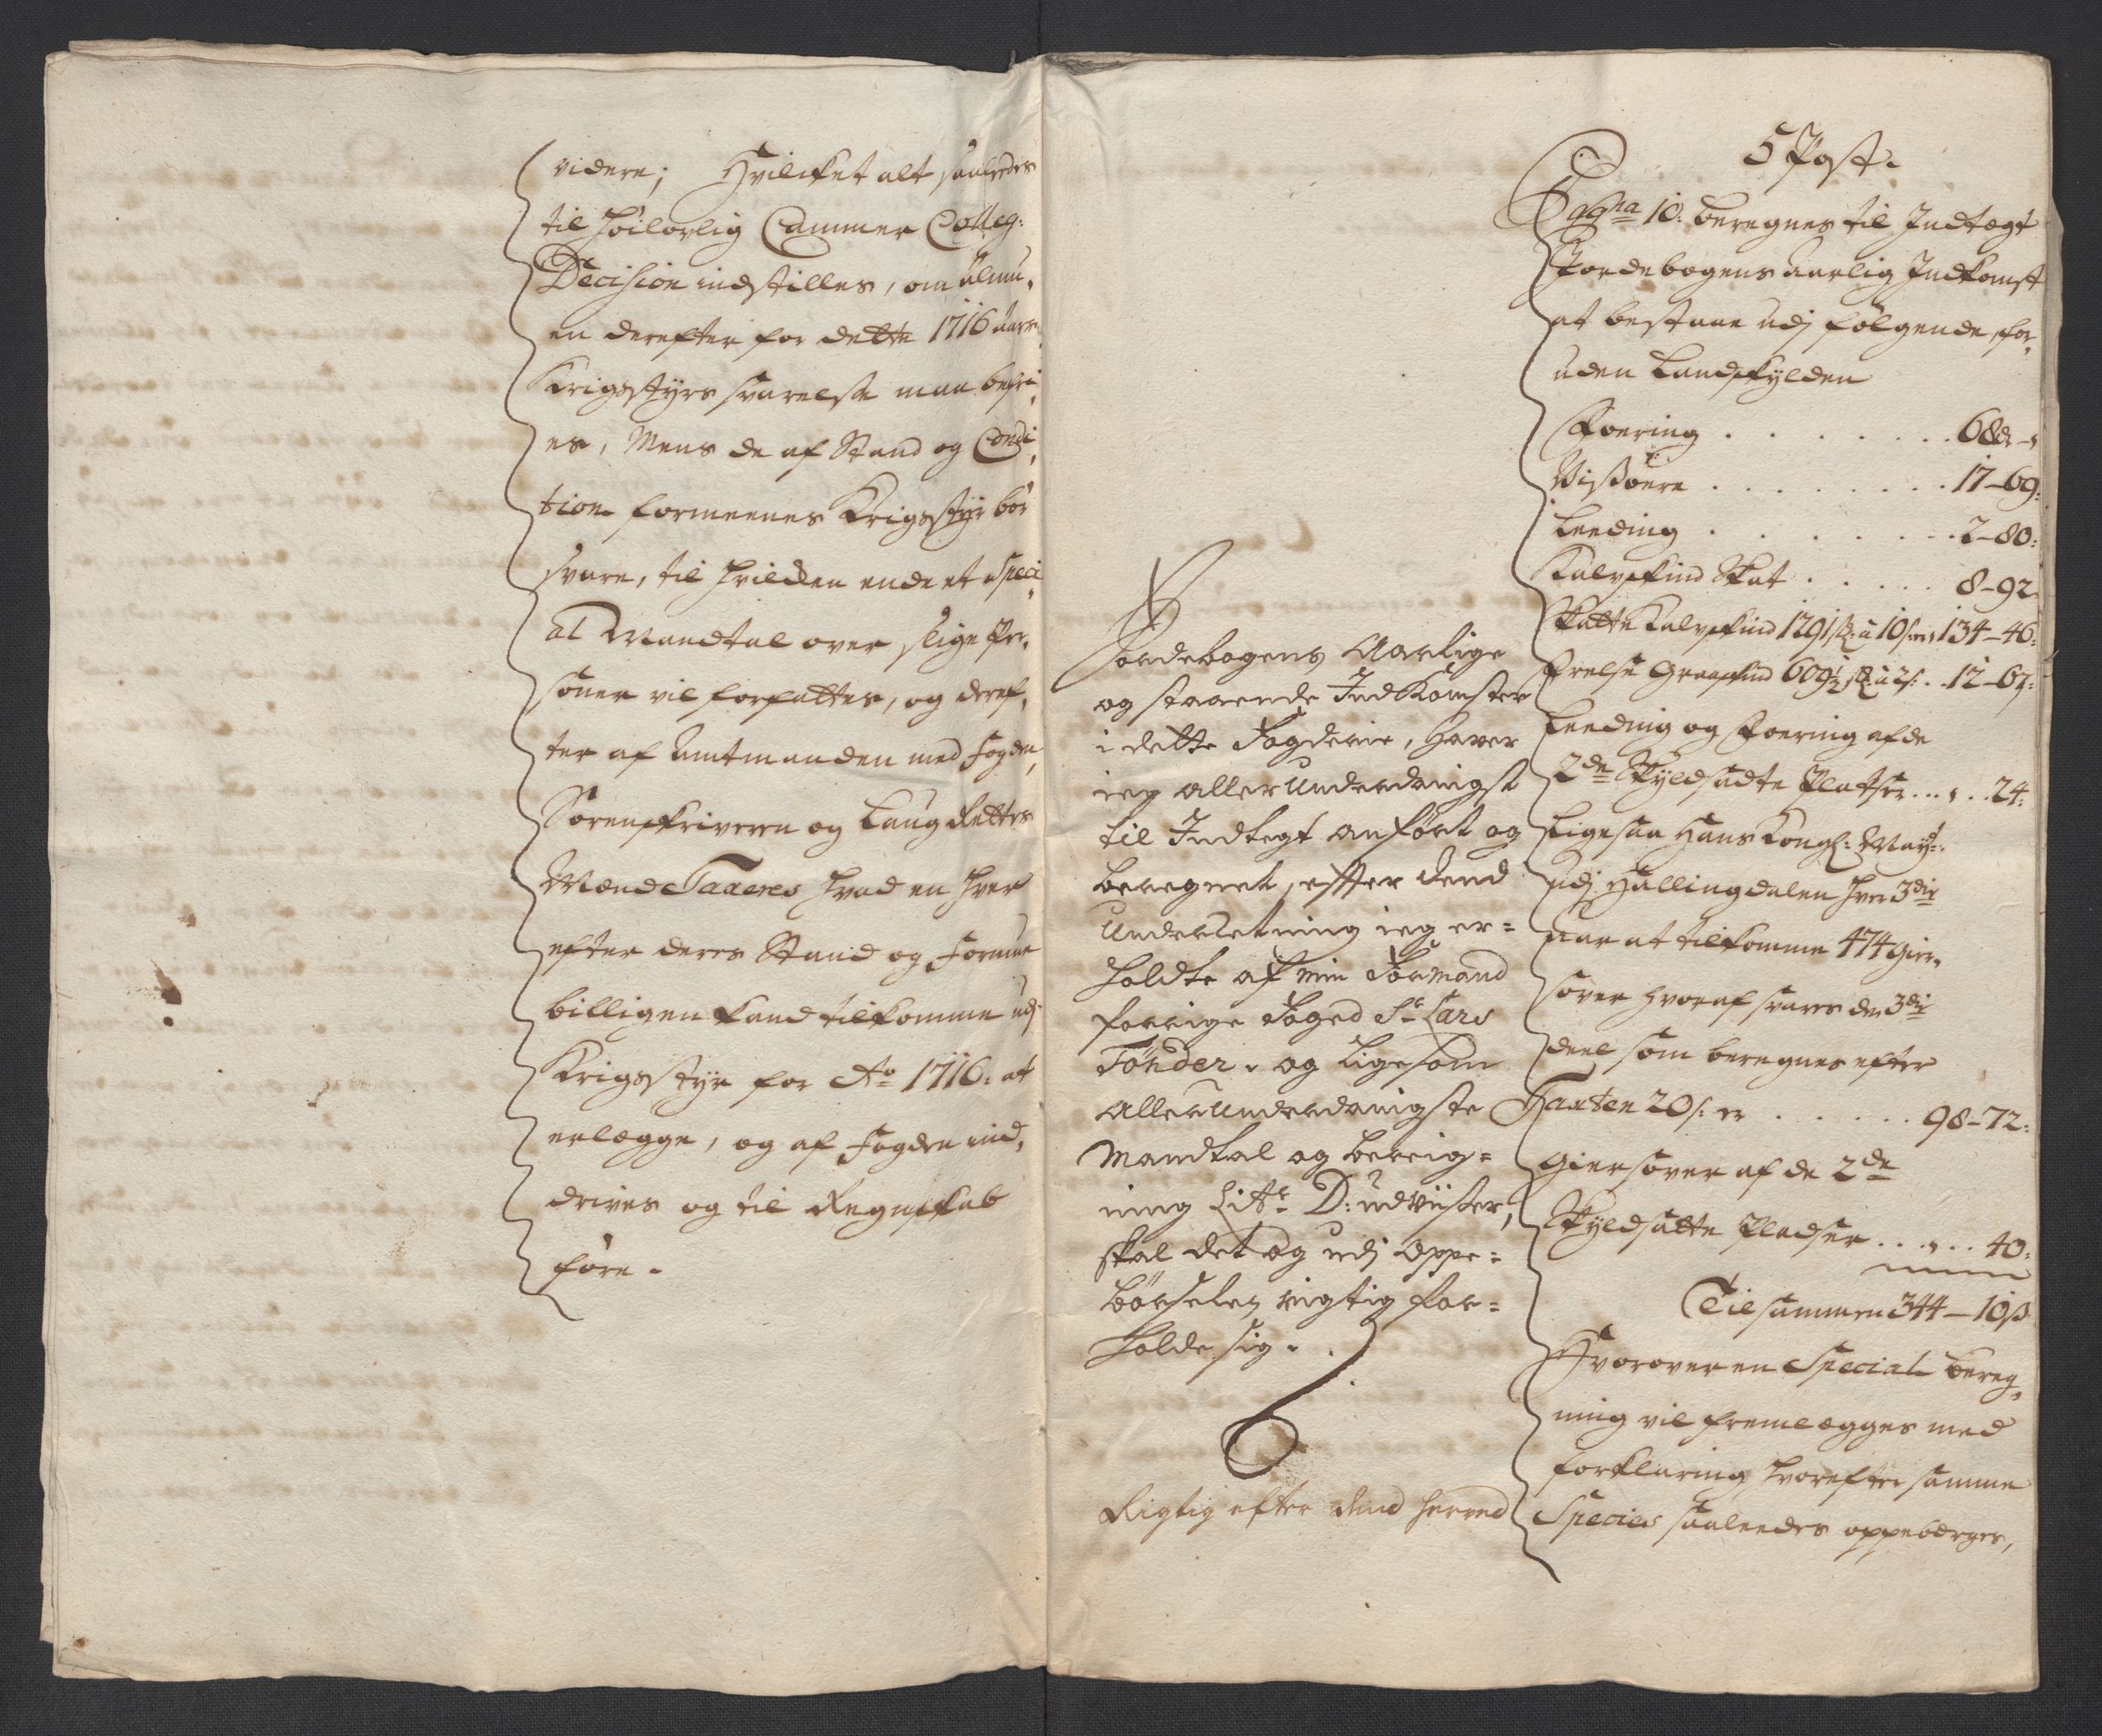 videre; Hvilcket alt saaledes
til höilovlig Cammer Colleg:
Decision indstilles, om almu,
en derefter for dette 1716 aars
Krigsstÿrs svarelse maa befri,
es, Mens de af Stand og Condi,
tion formeenes Krigsstÿr bör
svare, til hvilcken ende et Speci,
al Mandtal over slige Per,
soner vil forfattes, og deref,
ter af Amtmanden med fogden,
Sorenskriveren og Laug Rettes
Mænd Taxeres hvad en hver
efter deres Stand og formue
billigen kand tilkomme udj
Krigsstÿr for Ao 1716: at
erlægge, og af fogden ind,
drives og til Regnskab
före.
Jordebogens Aarlige
og staaende Indkomster
i dette Fogderie, haver
ieg allerunderdanigst
til Indtegt anfört og
beregnet, effter dend
underretning ieg er=
holdte af min Formand
forrige Foged Sr Lars
Tönder. og ligesom
allerunderdanigste
Mandtal og bereig=
ning Litr D: udviiser,
skal det og udj oppe=
börselen rigtig for=
holde sig.
Rigtig efter dend herved
5 Post.
Pagna 10: beregnes til Indtægt
Jordebogens aarlig Indkomst
at bestaae udj fölgende, for,
uden Landskÿlden
Foering . . . . . . . 68 dr -,
Vissöere . . . . . . . . 17-69:
Leeding . . . . . . . 2-80:
Kalvskind Skat . . . . . 8-92.
Skatte Kalvskind 1291 st: a 10 s: er, 134-46:
Frelse Graaskind 609½ st: a 2 s: . . 12-67:
Leeding og Foering af de
2de Skÿldsadte Pladser . . , . . 24:
Ligesaa Hans Kongl: Mayt:
udj Hallingdalen hver 3die
aar at tilkomme 474 gier,
söver hvoraf svares den 3die
deel som beregnes efter
Taxten 20 s: er . . . . . . 98-72:
Giersöver af de 2de
Skÿldsatte Pladser . . , . . 40:
Tilsammen 344-10 ß
Hvorover en Special bereg,
ning vil fremlægges med
forklaring hvorefter samme
Species saaleedes oppebærges,